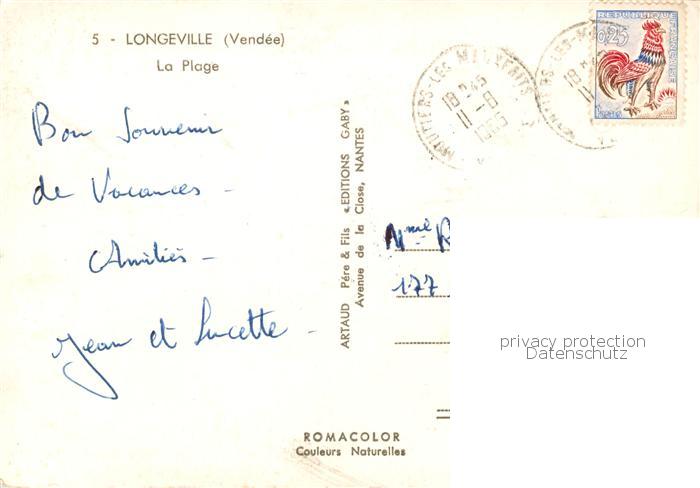 5 - LONGEVILLE (Vendée)
La Plage
Bon Souvenir
de Vacances -
Amitiés -
Jean et Lucette -
ARTAUD Père & Fils «EDITIONS GABY»
Avenue de la Close, NANTES
MOUTIERS-LES-MAUXFAITS
18 H45
11-8
1965
MOUTIERS-LES-M
18 H
11
0,25
REPUBLIQUE
FRANCAISE
Mme R
177
privacy protection
Datenschutz
ROMACOLOR
Couleurs Naturelles